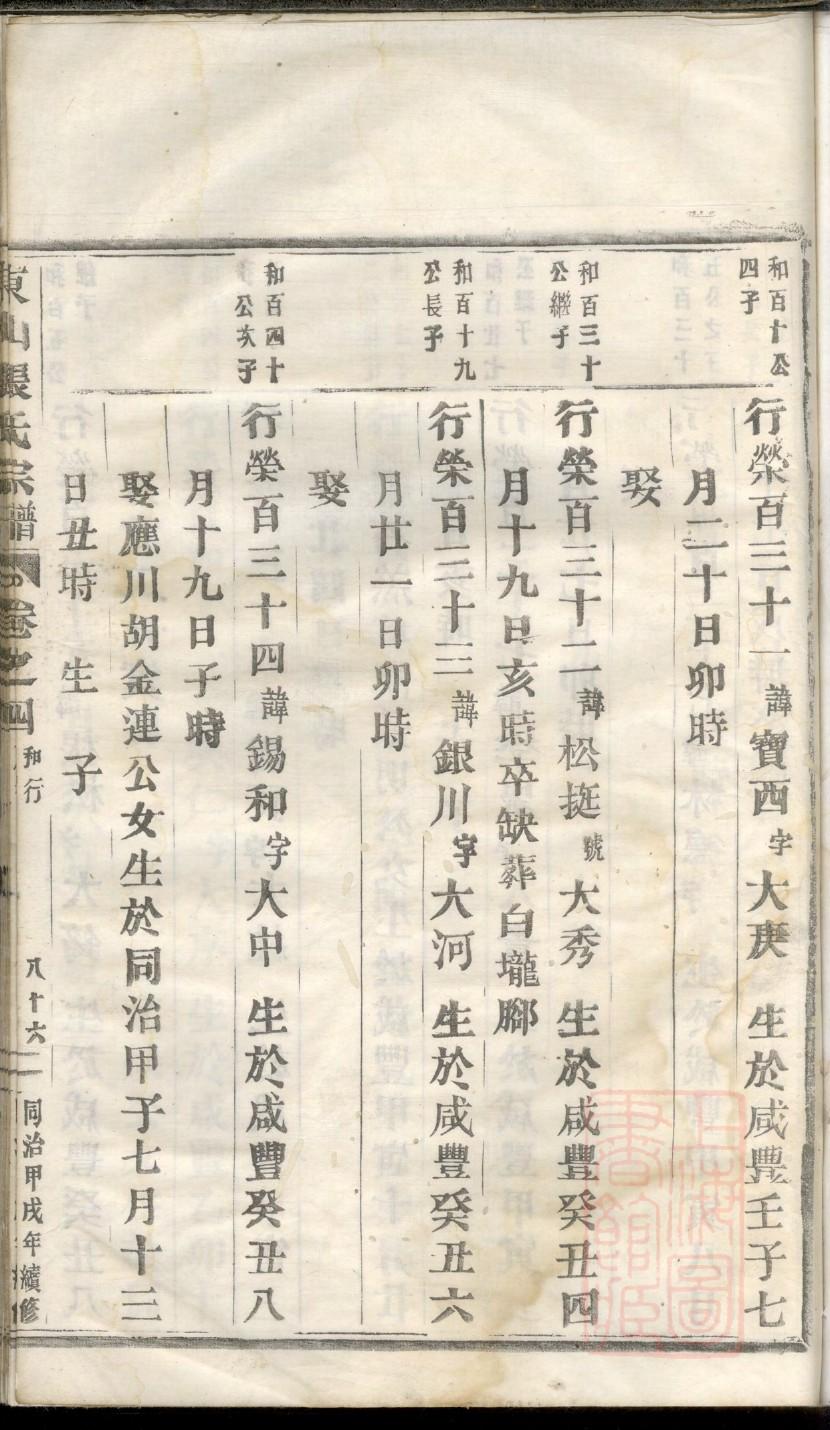 和百十公
四子
行榮百三十一諱寶西字大庚 生於咸豐壬子七
月二十日卯時
娶
和百三十
公繼子
行榮百三十二諱松挺號大秀 生於咸豐癸丑四
月十九日亥時卒缺葬白壠腳
和百十九
公長子
行榮百三十三諱銀川字大河 生於咸豐癸丑六
月廿一日卯時
娶
和百四十
公次子
行榮百三十四諱錫和字大中 生於咸豐癸丑八
月十九日子時
娶應川胡金連公女生於同治甲子七月十三
日丑時 生 子
東山張氏宗譜 卷之四 和行 八十六 同治甲戌年續修
上海圖
書館藏